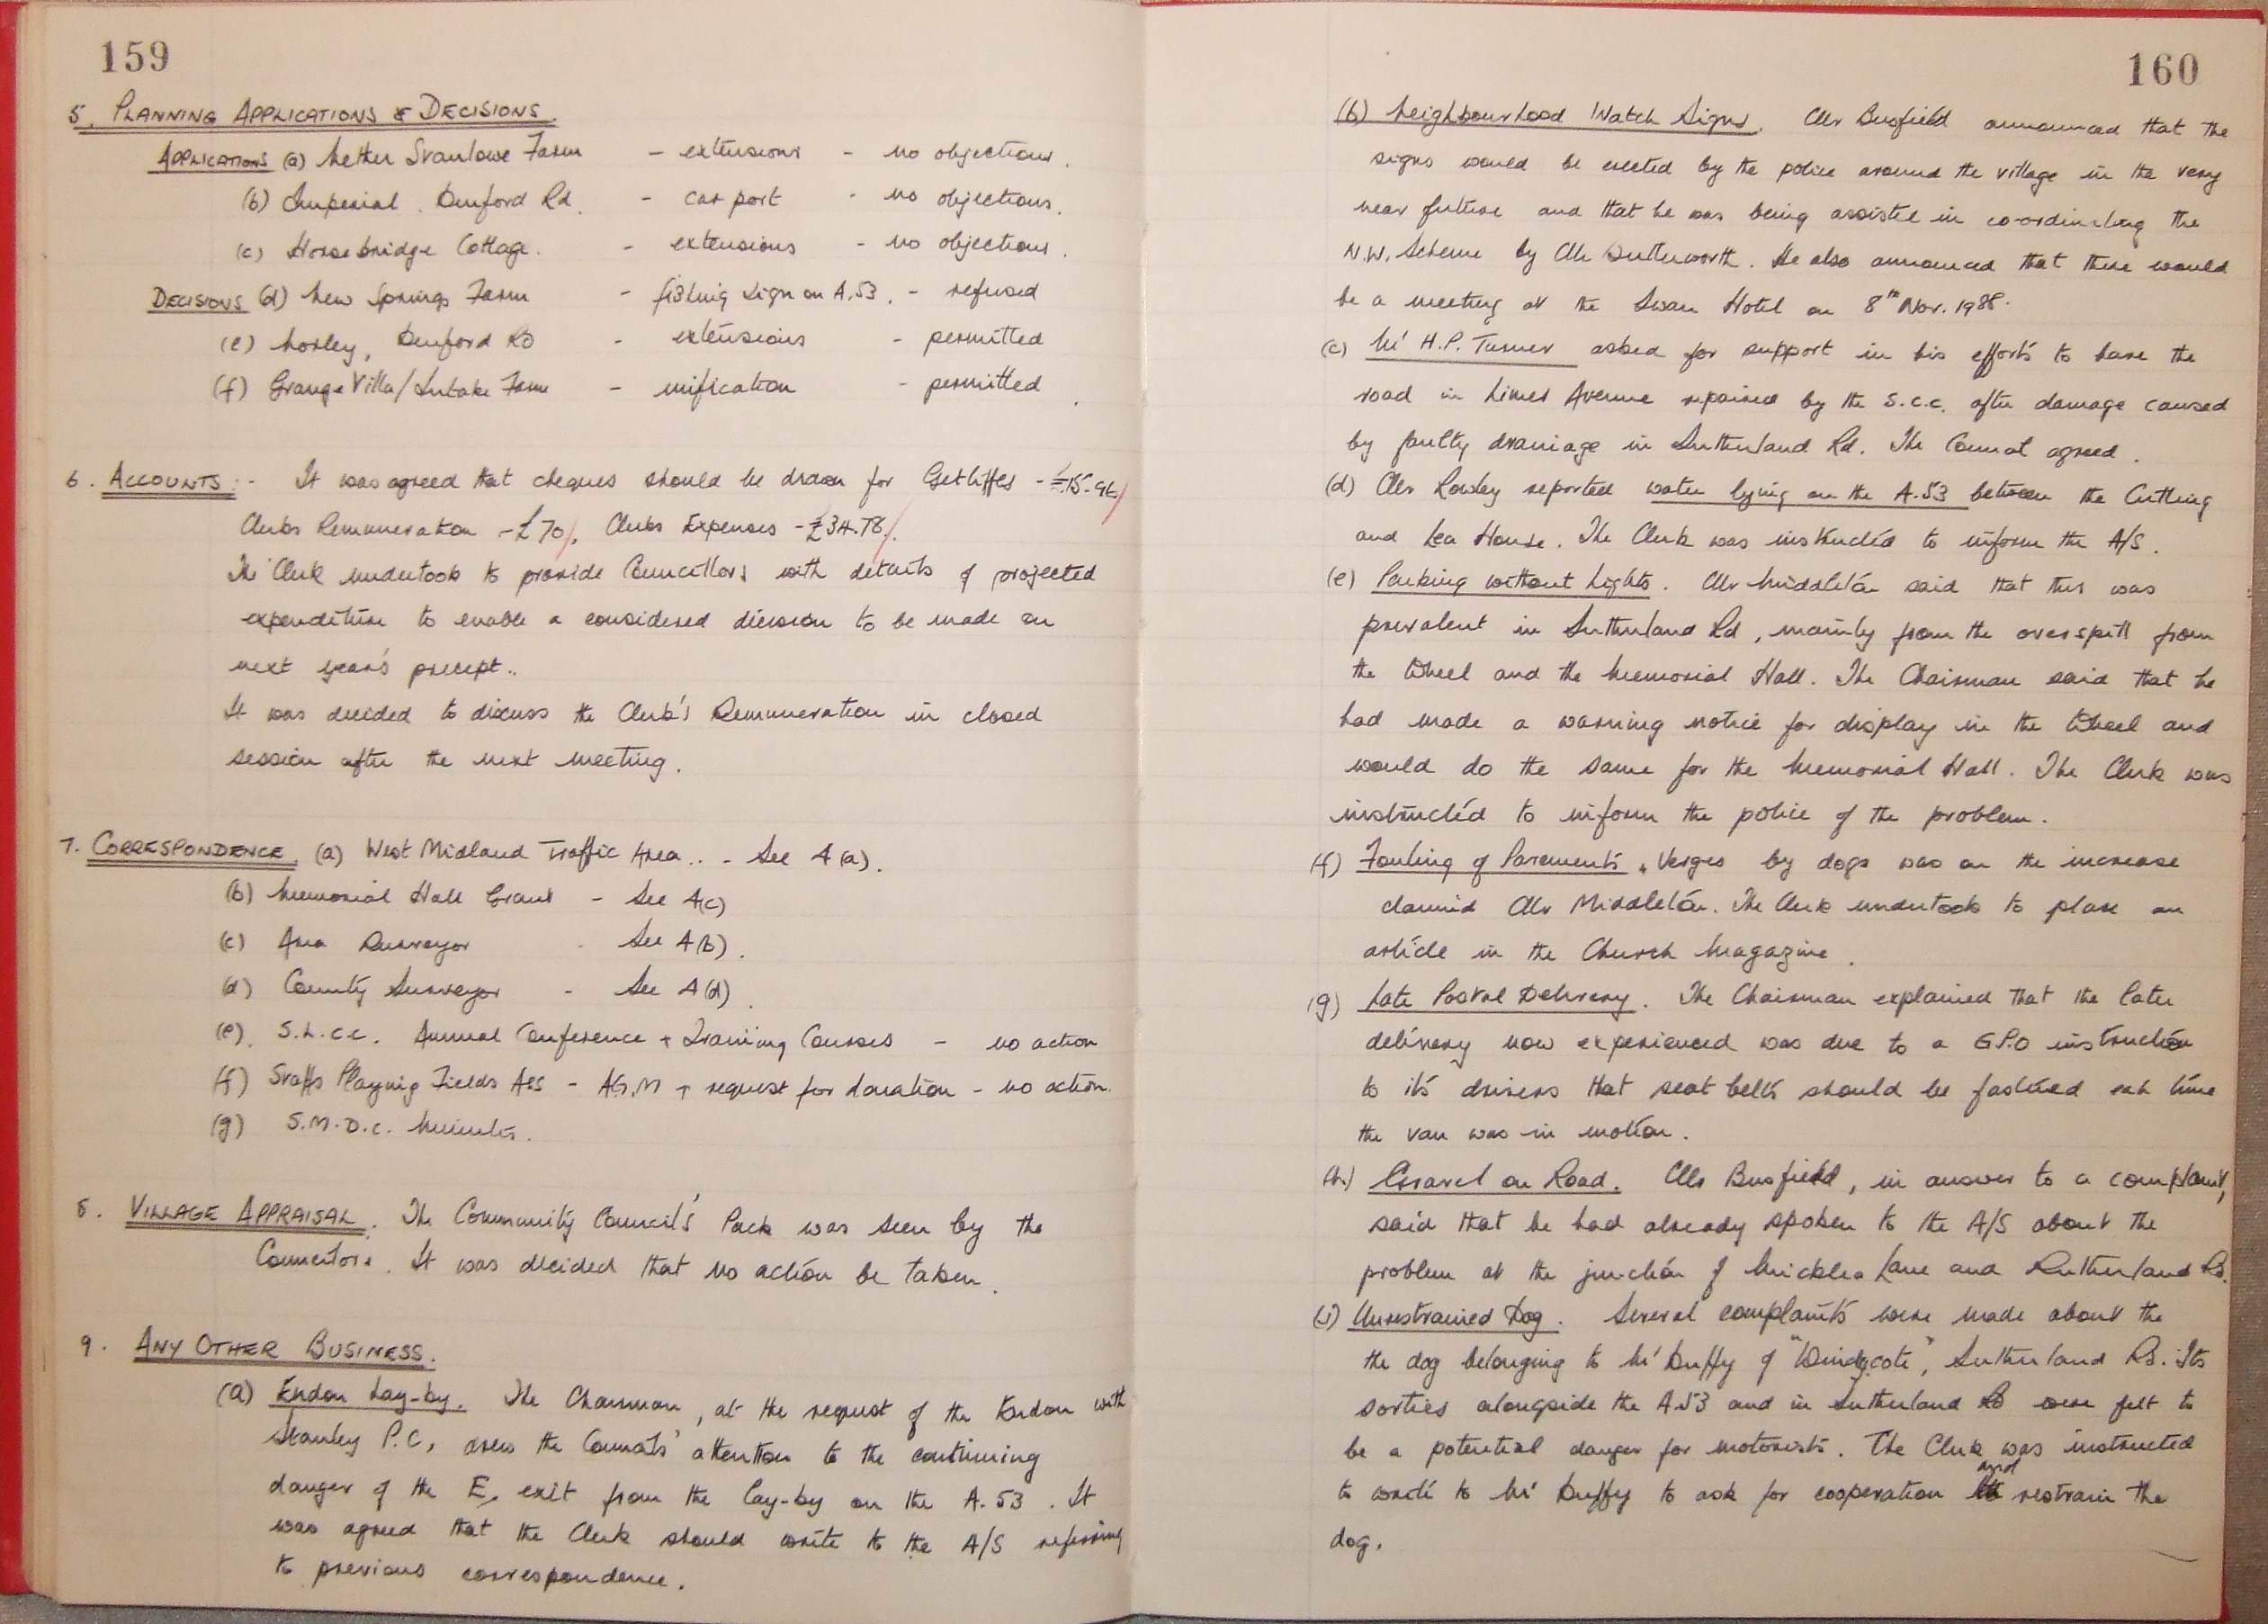 159
5. PLANNING APPLICATIONS & DECISIONS.
APPLICATIONS (a) Nether Stanlowe Farm - extensions - no objections.
(b) Imperial. Denford Rd. - car port - no objections.
(c) Horsebridge Cottage. - extensions - no objections.
DECISIONS (d) New Springs Farm - fishing sign on A.53. - refused
(e) Morley, Denford Rd - extensions - permitted
(f) Grange Villa/Intake Farm - unification - permitted.
6. ACCOUNTS:- It was agreed that cheques should be drawn for Getliffes -
Clerks Remuneration - £70, Clerks Expenses - £34.78.
The Clerk undertook to provide Councillors with details of projected
expenditure to enable a considered decision to be made on
next year's precept..
It was decided to discuss the Clerk's Remuneration in closed
session after the next meeting.
7. CORRESPONDENCE. (a) West Midland Traffic Area.. - See 4(a).
(b) Memorial Hall Grant - See 4(c)
(c) Area Surveyor - See 4(b).
(d) County Surveyor - See 4(d).
(e). S.L.C.C. Annual Conference + Training Courses - no action
(f) Staffs Playing Fields Ass - A.G.M + request for donation - no action.
(g) S.M.D.C. Minutes.
8. VILLAGE APPRAISAL. The Community Council's Pack was seen by the
Councillors. It was decided that no action be taken.
9. ANY OTHER BUSINESS.
(a) Endon Lay-by. The Chairman, at the request of the Endon with
Stanley P.C, drew the Councils' attention to the continuing
danger of the E. exit from the lay-by on the A.53. It
was agreed that the Clerk should write to the A/S referring
to previous correspondence.
160
(b) Neighbourhood Watch Signs. Cllr Busfield announced that the
signs would be erected by the police around the village in the very
near future and that he was being assisted in co-ordinating the
N.W. Scheme by Cllr Butterworth. He also announced that there would
be a meeting at the Swan Hotel on 8th Nov. 1988.
(c) Mr H.P. Turner asked for support in his efforts to have the
road in Limes Avenue repaired by the S.C.C. after damage caused
by faulty drainage in Sutherland Rd. The Council agreed.
(d) Cllr Rowley reported water lying on the A.53 between the Cutting
and Lea House. The Clerk was instructed to inform the A/S.
(e) Parking without Lights. Cllr Middleton said that this was
prevalent in Sutherland Rd, mainly from the overspill from
the Wheel and the Memorial Hall. The Chairman said that he
had made a warning notice for display in the Wheel and
would do the same for the Memorial Hall. The Clerk was
instructed to inform the police of the problem.
(f) Fouling of Pavements & Verges by dogs was on the increase
claimed Cllr Middleton. The Clerk undertook to place an
article in the Church Magazine.
(g) Late Postal Delivery. The Chairman explained that the later
delivery now experienced was due to a G.P.O instruction
to it's drivers that seat belts should be fastened each time
the van was in motion.
(h) Gravel on Road. Cllr Busfield, in answer to a complaint,
said that he had already spoken to the A/S about the
problem at the junction of Micklea Lane and Sutherland Rd.
(i) Unrestrained Dog. Several complaints were made about the
the dog belonging to Mr Duffy of "Windycote", Sutherland Rd. Its
sorties alongside the A53 and in Sutherland Rd were felt to
be a potential danger for motorists. The Clerk was instructed
to write to Mr Duffy to ask for cooperation and restrain the
dog.